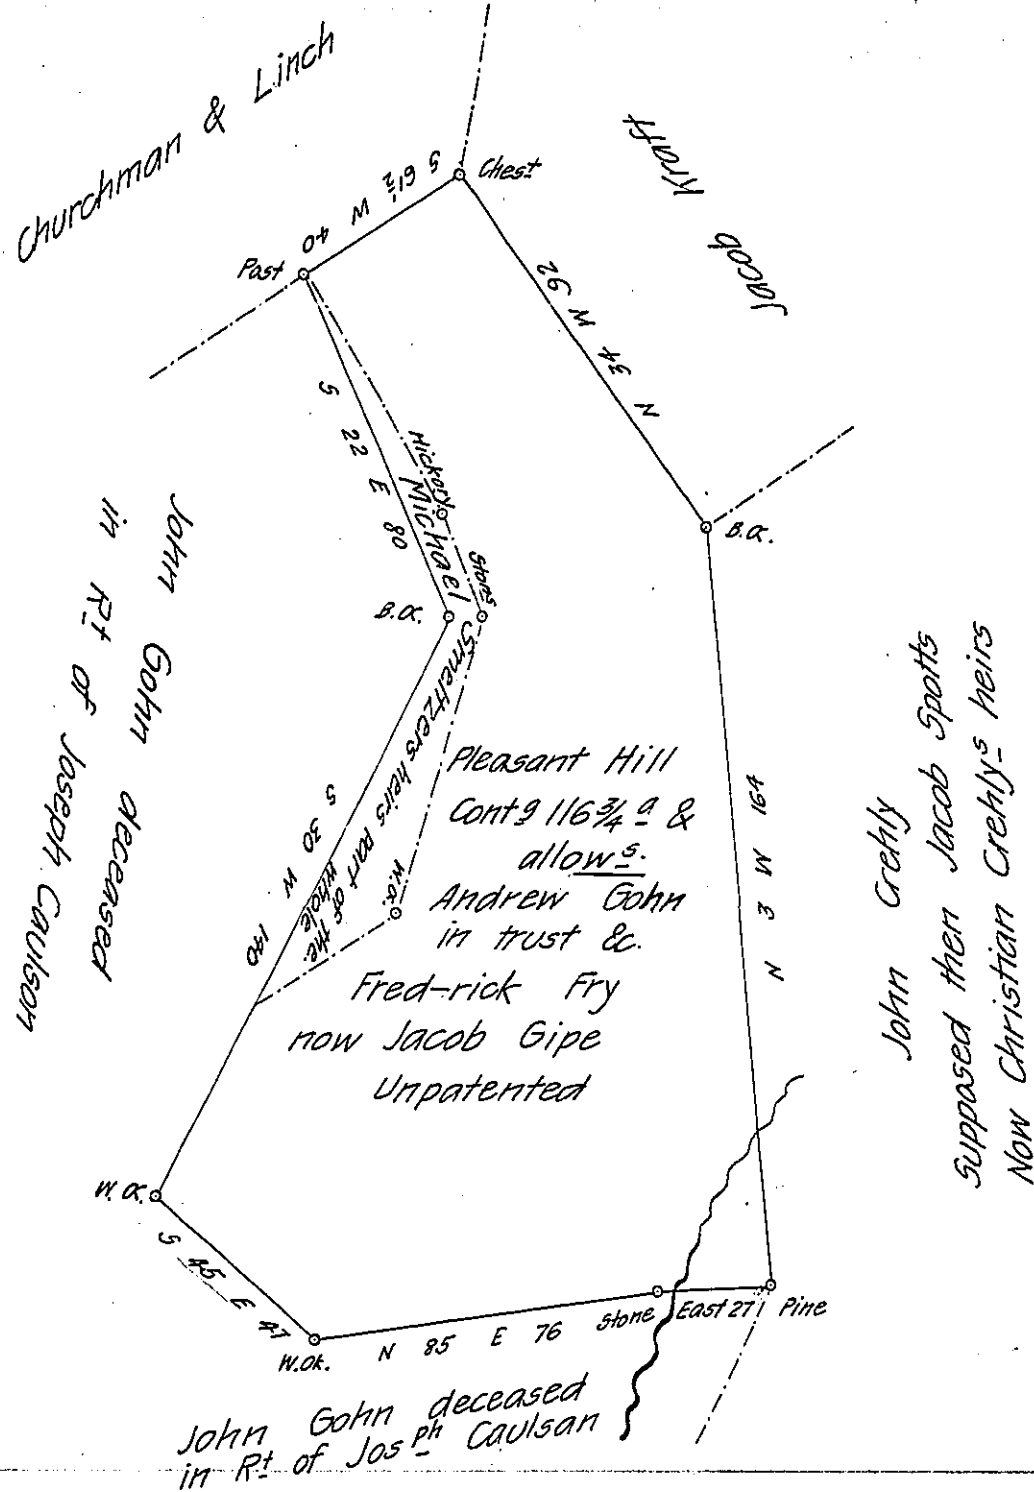 Churchman & Linch
S 61½ W 40
Chest
Jacob Kraft
Post
N 34 W 92
S 22 E 80
Hickory
Stones
B.O.
B.O.
Michael Smeltzers heirs part of the whole
John Gohn deceased
in Rt of Joseph Caulson
Pleasant Hill
Contg 116¾ a &
allows.
Andrew Gohn
in trust &c.
Fred-rick Fry
now Jacob Gipe
Unpatented
S 30 W 140
W.O.
N 3 W 164
John Crehly
Supposed then Jacob Spotts
Now Christian Crehlys heirs
W.O.
S 45 E 47
W.Ok.
N 85 E 76
Stone
East 27
Pine
John Gohn deceased
in Rt of Josph Caulsan